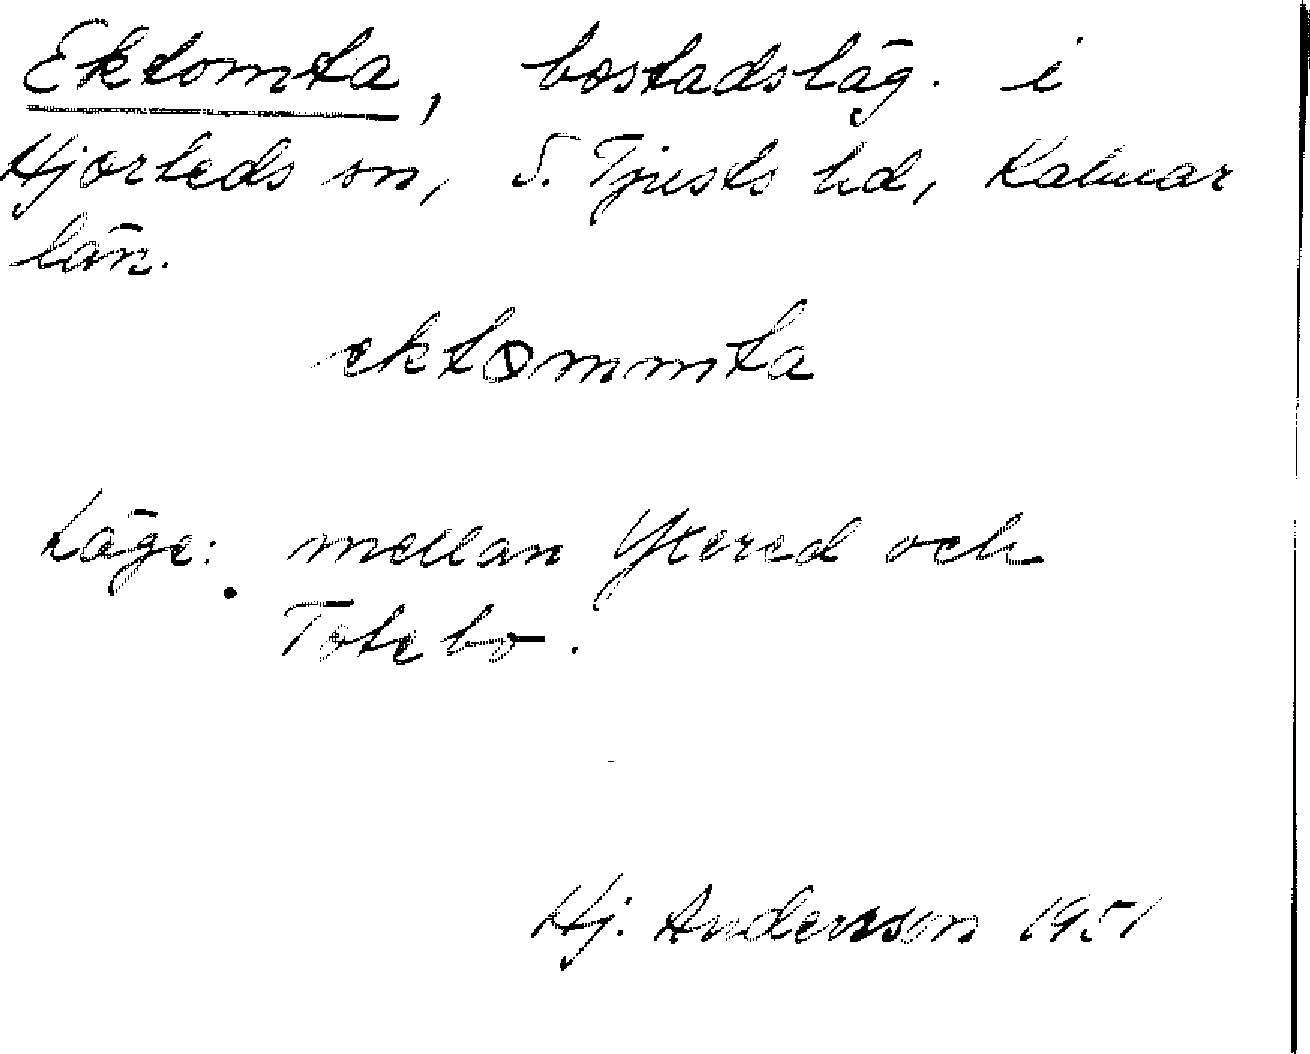 Ektomta, bostadsläg. i
Hjorteds sn, S. Tjusts hd, Kalmar
län.
ektømmta
Läge: mellan Ytered och
Totebo.
Hj. Andersson 1951